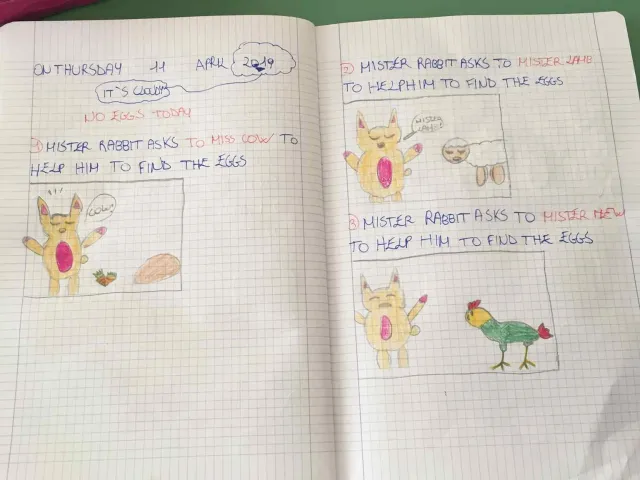 ON THURSDAY 11 APRIL 2019
IT'S CLOUDY
NO EGGS TODAY
1) MISTER RABBIT ASKS TO MISS COW TO
HELP HIM TO FIND THE EGGS
COW!
2) MISTER RABBIT ASKS TO MISTER LAMB
TO HELP HIM TO FIND THE EGGS
MISTER
3) MISTER RABBIT ASKS TO MISTER
TO HELP HIM TO FIND THE EGGS